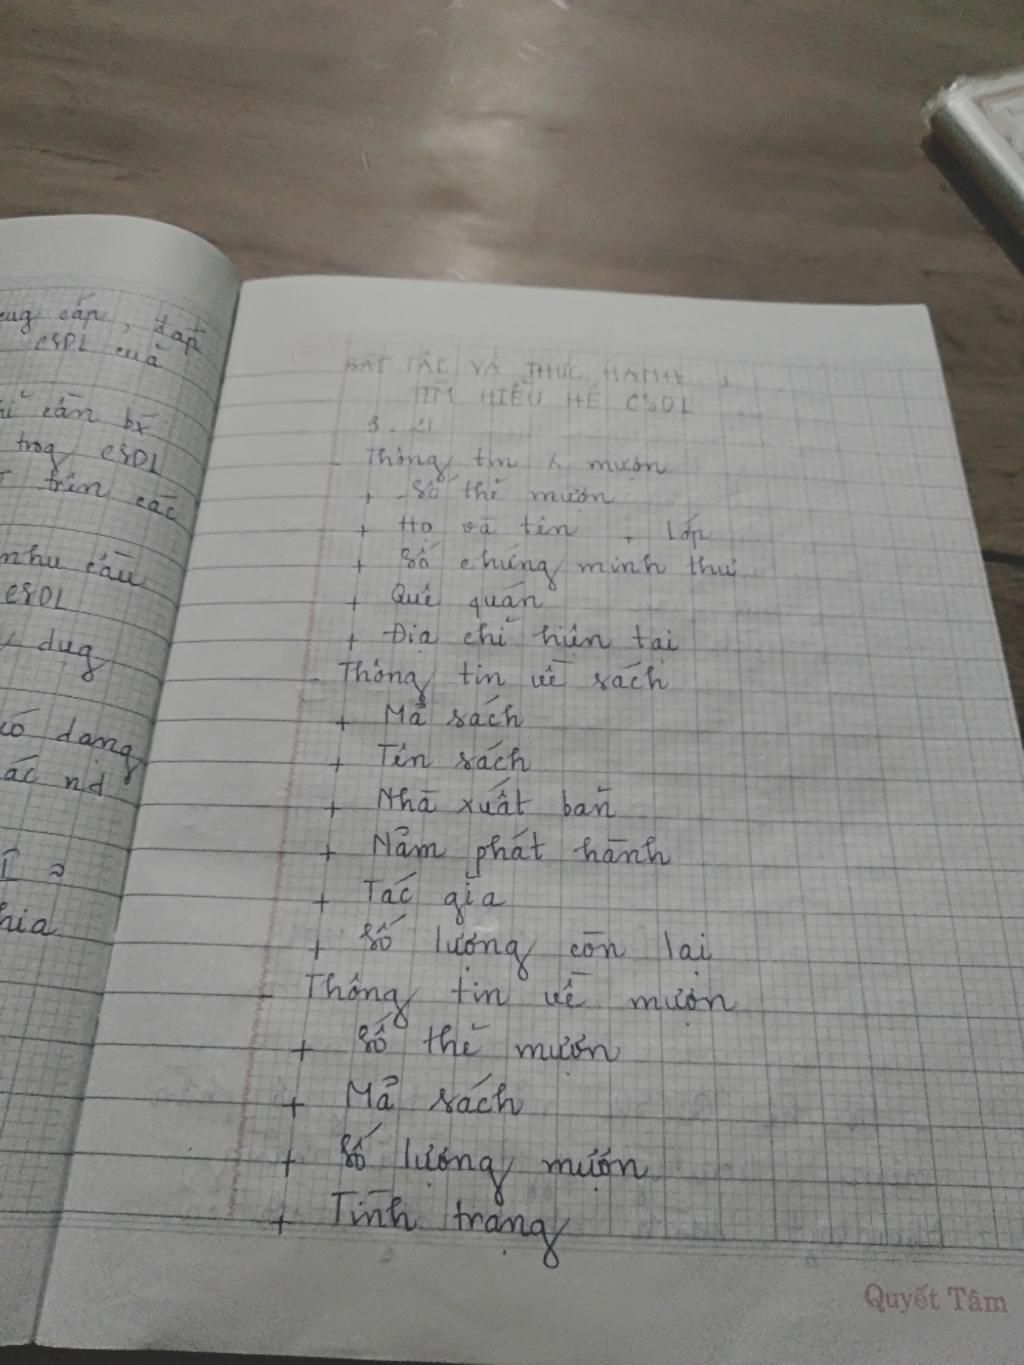 cấp, đặt
CSDL của
cần bx
trog CSDL
trên các
nhu cầu
CSDL
dug
có dạng
ác nd
hia
BÀI TÂC VÀ THỰC HÀNH 1
TÌM HIỂU HỆ CSDL
Thông tin mượn
+ Số thẻ mượn
+ Họ và tên + Lớp
+ Số chứng minh thư
+ Quê quán
+ Địa chỉ hiện tại
- Thông tin về sách
+ Mã sách
+ Tên sách
+ Nhà xuất bản
+ Năm phát hành
+ Tác giả
+ Số lượng còn lại
- Thông tin về mượn
+ Số thẻ mượn
+ Mã sách
+ Số lượng mượn
+ Tình trạng
Quyết Tâm